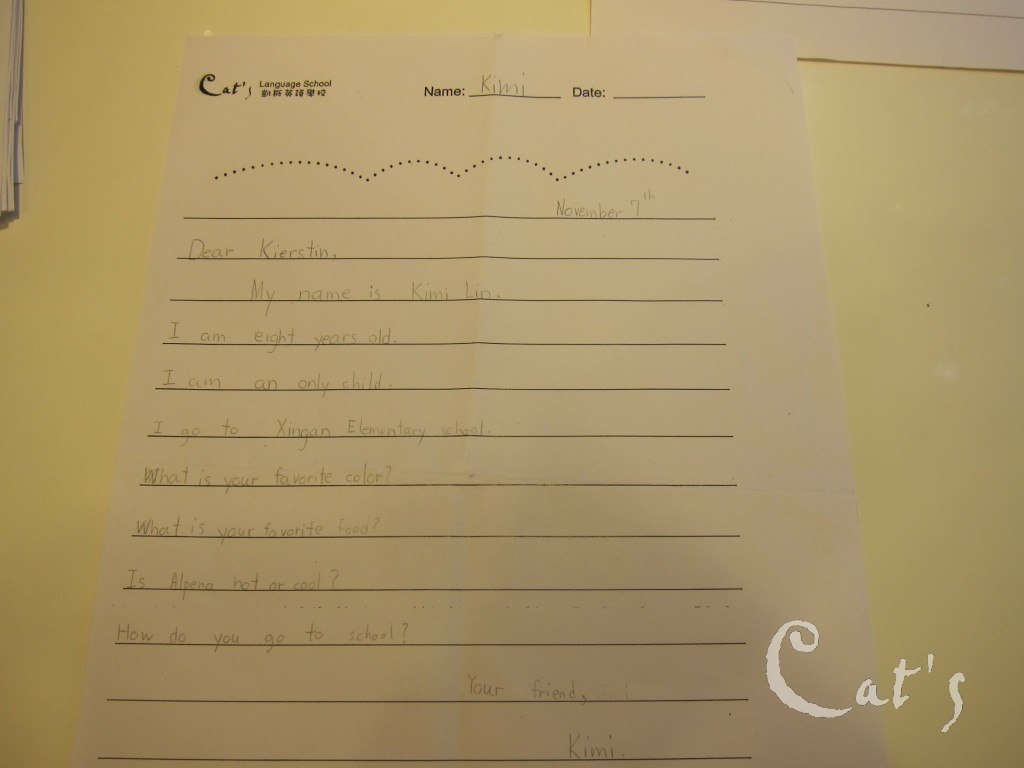 Cat's Language School
凱斯英語學校
Name: Kimi Date:
November 7th
Dear Kierstin,
My name is Kimi Lin.
I am eight years old.
I am an only child.
I go to Xingan Elementary school.
What is your favorite color?
What is your favorite food?
Is Alpena hot or cool?
How do you go to school?
Your friend,
Kimi.
Cat's